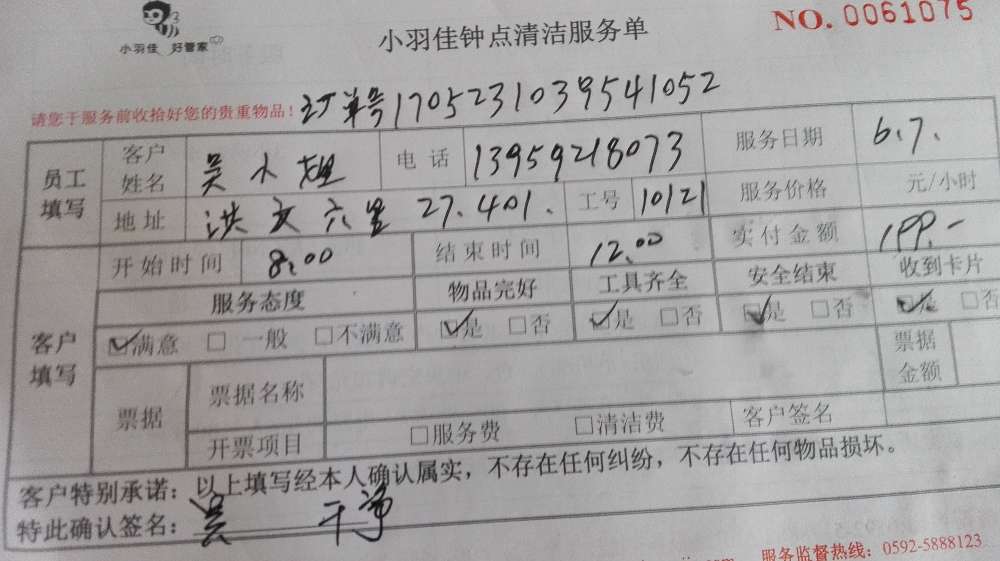 小羽佳 好管家
小羽佳钟点清洁服务单
NO. 0061075
请您于服务前收拾好您的贵重物品！ 订单号1705231039541052
员工填写 客户姓名 吴小姐 电话 13959218073 服务日期 6.7.
地址 洪文六里 27.401. 工号 10121 服务价格 元/小时
客户填写 开始时间 8:00 结束时间 12:00 实付金额 199.-
服务态度 物品完好 工具齐全 安全结束 收到卡片
☑满意 □一般 □不满意 ☑是 □否 ☑是 □否 ☑是 □否 ☑是 □否
票据 票据名称 票据金额
开票项目 □服务费 □清洁费 客户签名
客户特别承诺：以上填写经本人确认属实，不存在任何纠纷，不存在任何物品损坏。
特此确认签名：吴 干净
服务监督热线：0592-5888123